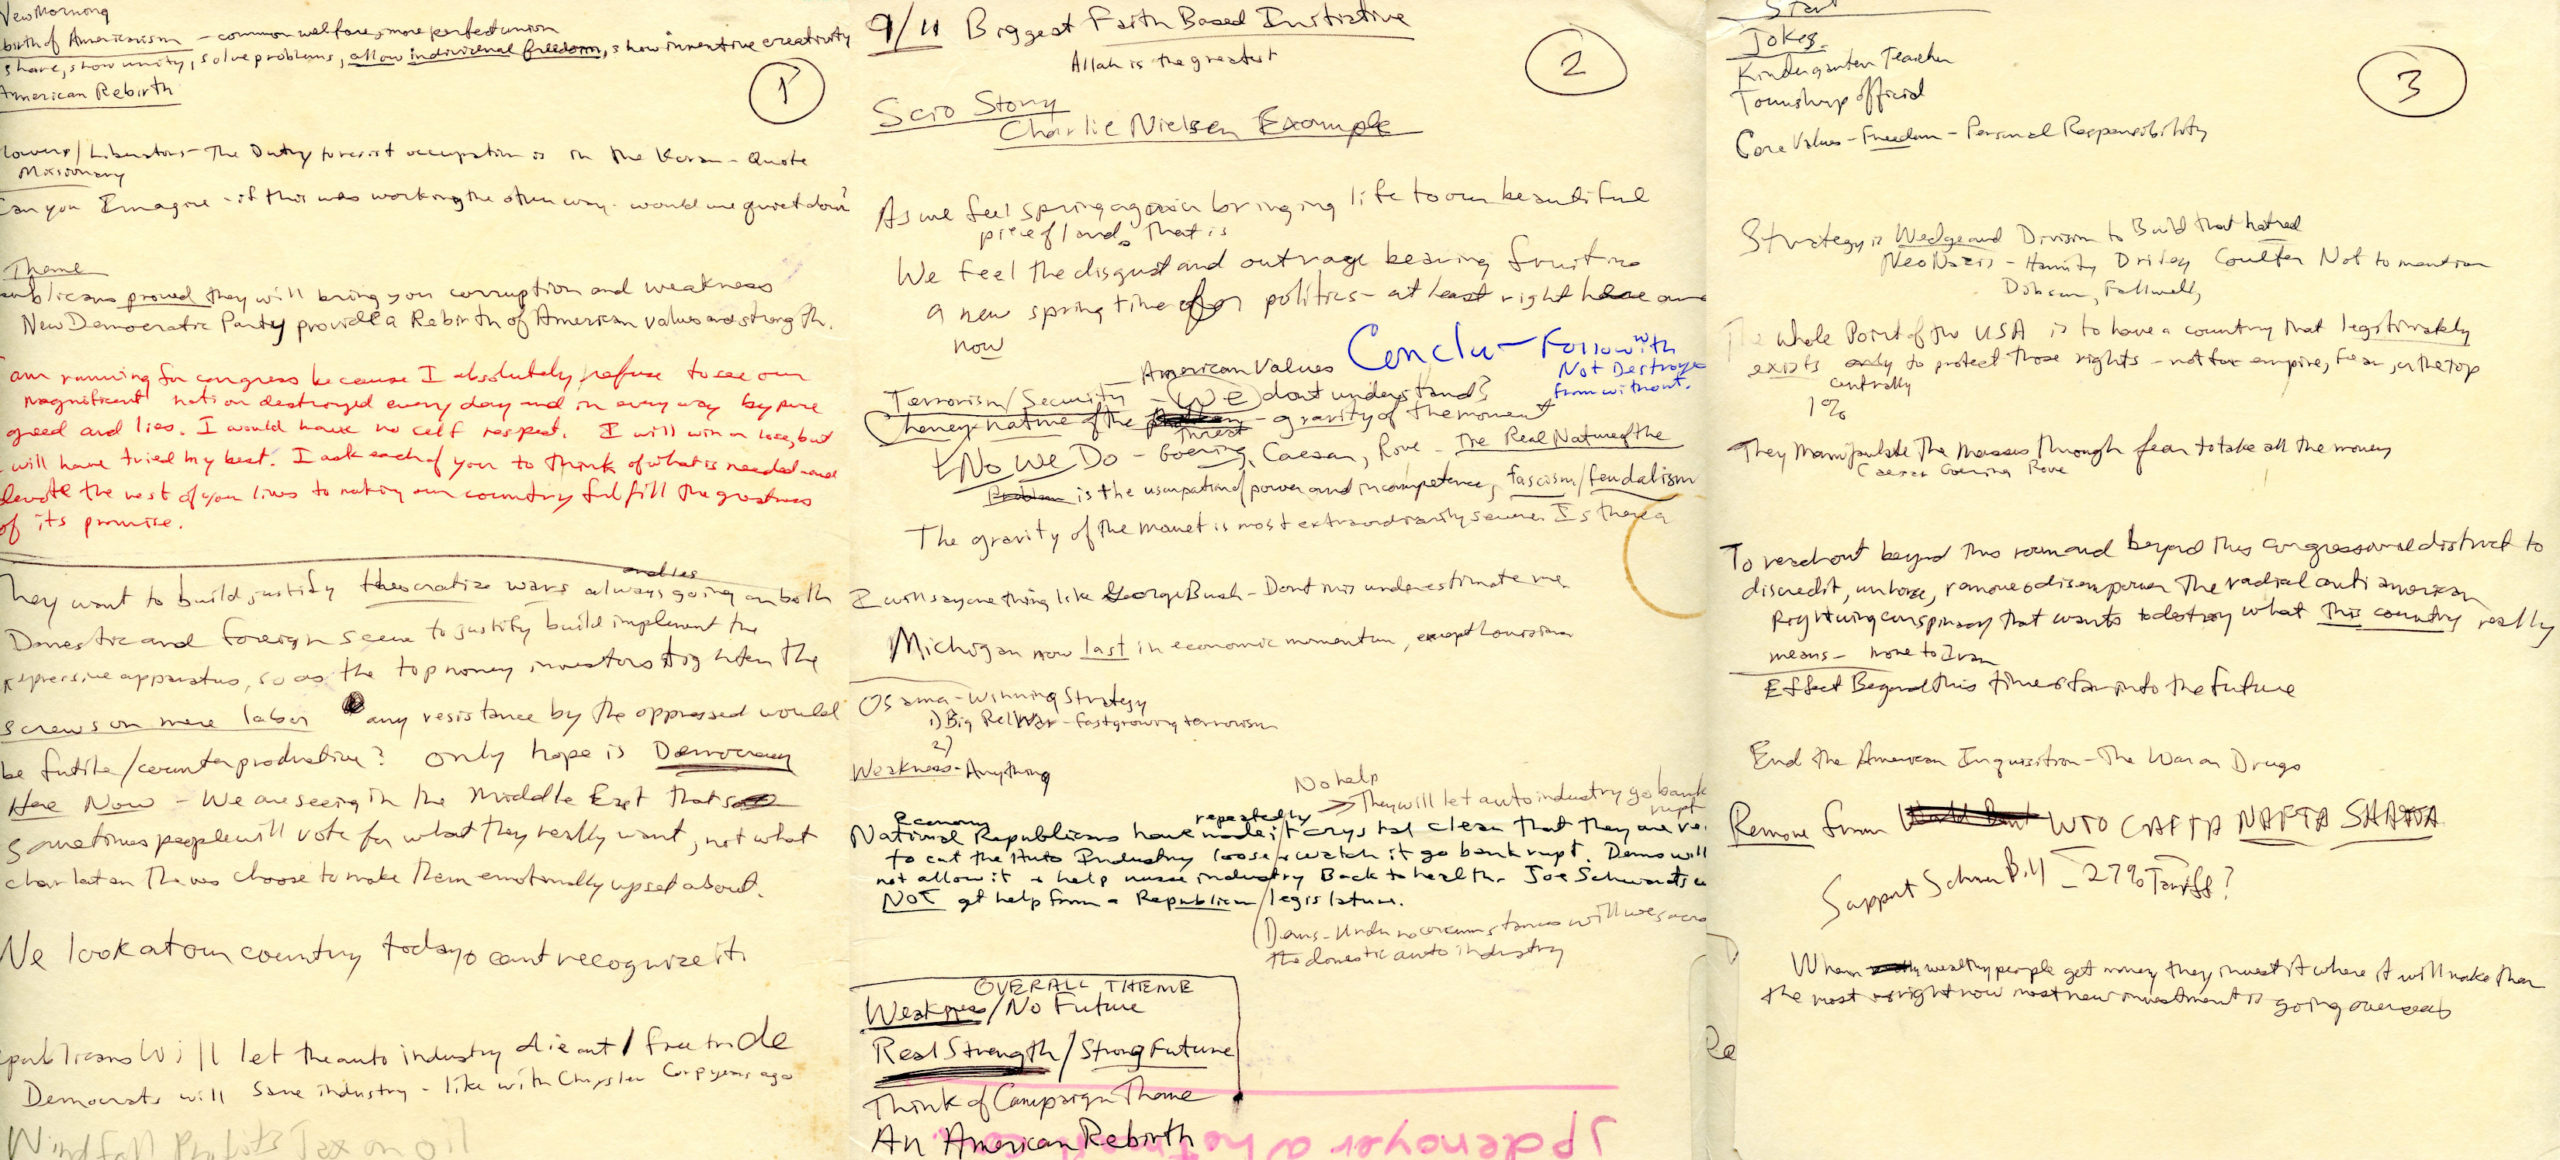 New Morning
birth of Americanism - common welfare, more perfect union
share, show unity, solve problems, allow individual freedom, show inventive creativity
American Rebirth
1
/Liberators - The Duty to resist occupation is in the Koran - Quote
Missionary
Can you Imagine - if this was working the other way - would we quiet down?
Theme
publicans proved they will bring you corruption and weakness
New Democratic Party provide a Rebirth of American values and strength.
I am running for congress because I absolutely refuse to see our
magnificent nation destroyed every day and in every way by pure
greed and lies. I would have no self respect. I will win or lose, but
will have tried my best. I ask each of you to think of what is needed and
devote the rest of your lives to making our country fulfill the greatness
of its promise.
and lies
They want to build, justify theocratize wars always going on both
Domestic and foreign scene to justify build implement the
repressive apparatus, so as the top money investors tighten the
screws on mere labor any resistance by the oppressed would
be futile/counterproductive? Only hope is Democracy
Here Now - We are seeing in the Middle East that
sometimes people will vote for what they really want, not what
charlatan thieves choose to make them emotionally upset about.
We look at our country today & cant recognize it.
publicans will let the auto industry die out / free trade
Democrats will save industry - like with Chrysler Corp years ago
Windfall Profits Tax on oil
9/11 Biggest Faith Based Initiative
Allah is the greatest
2
Scio Story
Charlie Nielsen Example
As we feel spring again bringing life to our beautiful
piece of land, that is
We feel the disgust and outrage bearing fruit in
a new spring time for politics - at least right here and
now
American Values
Conclu - Follow with
Not Destroyed
from without.
Terrorism/Security - We dont understand?
Cheney - nature of the threat - gravity of the moment
No We Do - Goering, Caesar, Rove - The Real Nature of the
Problem is the usurpation of power and incompetence, fascism/feudalism
The gravity of the moment is most extraordinarily severe. Is there a
I will say one thing like George Bush - Dont mis underestimate me
Michigan now last in economic momentum, except Louisiana
Osama - Winning Strategy
1) Big Rel War - fast growing terrorism
2)
Weakness - Anything
No help
They will let auto industry go bank
rupt
Economy repeatedly
National Republicans have made it crystal clear that they are
to cut the Auto Industry loose & watch it go bankrupt. Dems will
not allow it & help nurse industry Back to health. Joe Schwartz
NOT get help from a Republican legislature.
Dems - Under no circumstances will we
the domestic auto industry
OVERALL THEME
Weakness/No Future
Real Strength/Strong Future
Think of Campaign Theme
An American Rebirth
jpdenoyer
Start
Jokes.
Kindergarten Teacher
Township official
3
Core Values - Freedom - Personal Responsibility
Strategy is Wedge and Division to Build that hatred
NeoNazis - Hannity Coulter Not to mention
Dobson, Fallwell,
The whole Point of the USA is to have a country that legitimately
exists only to protect those rights - not for empire, fear, or the top
centrally
1%
They Manipulate The Masses through fear to take all the money
Caesar Goering Rove
To reach out beyond this room and beyond this congressional district to
discredit, unhorse, remove & disempower the radical anti american
Rightwing conspiracy that wants to destroy what this country really
means - move to Iran
Effect Beyond this time & far into the future
End the American Inquisition - The War on Drugs
Remove from WTO CAFTA NAFTA SHAFTA
Support Schumer Bill - 27% Tariff?
When wealthy people get money they invest it where it will make them
the most & right now most new investment is going overseas
Re